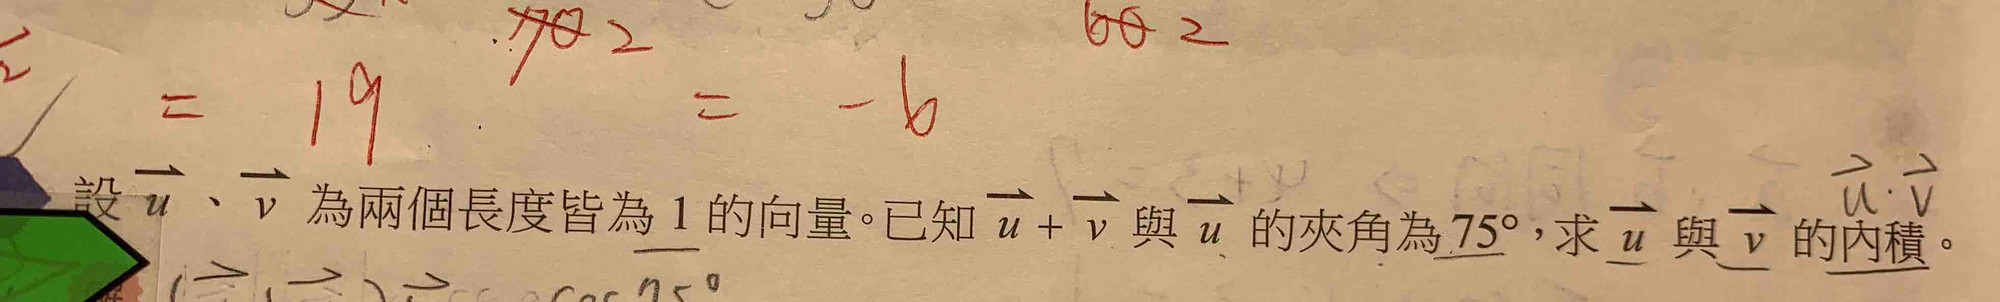 70 2 60 2
= 19 = -6
u · v
設 u 、 v 為兩個長度皆為 1 的向量。已知 u + v 與 u 的夾角為 75°，求 u 與 v 的內積。
cos 75°